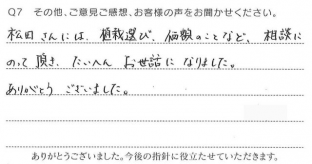 Q7 その他、ご意見ご感想、お客様の声をお聞かせください。
松田さんには、植栽選び、価額のことなど、相談に
のって頂き、たいへん お世話に なりました。
ありがとう ございました。
ありがとうございました。今後の指針に役立たせていただきます。